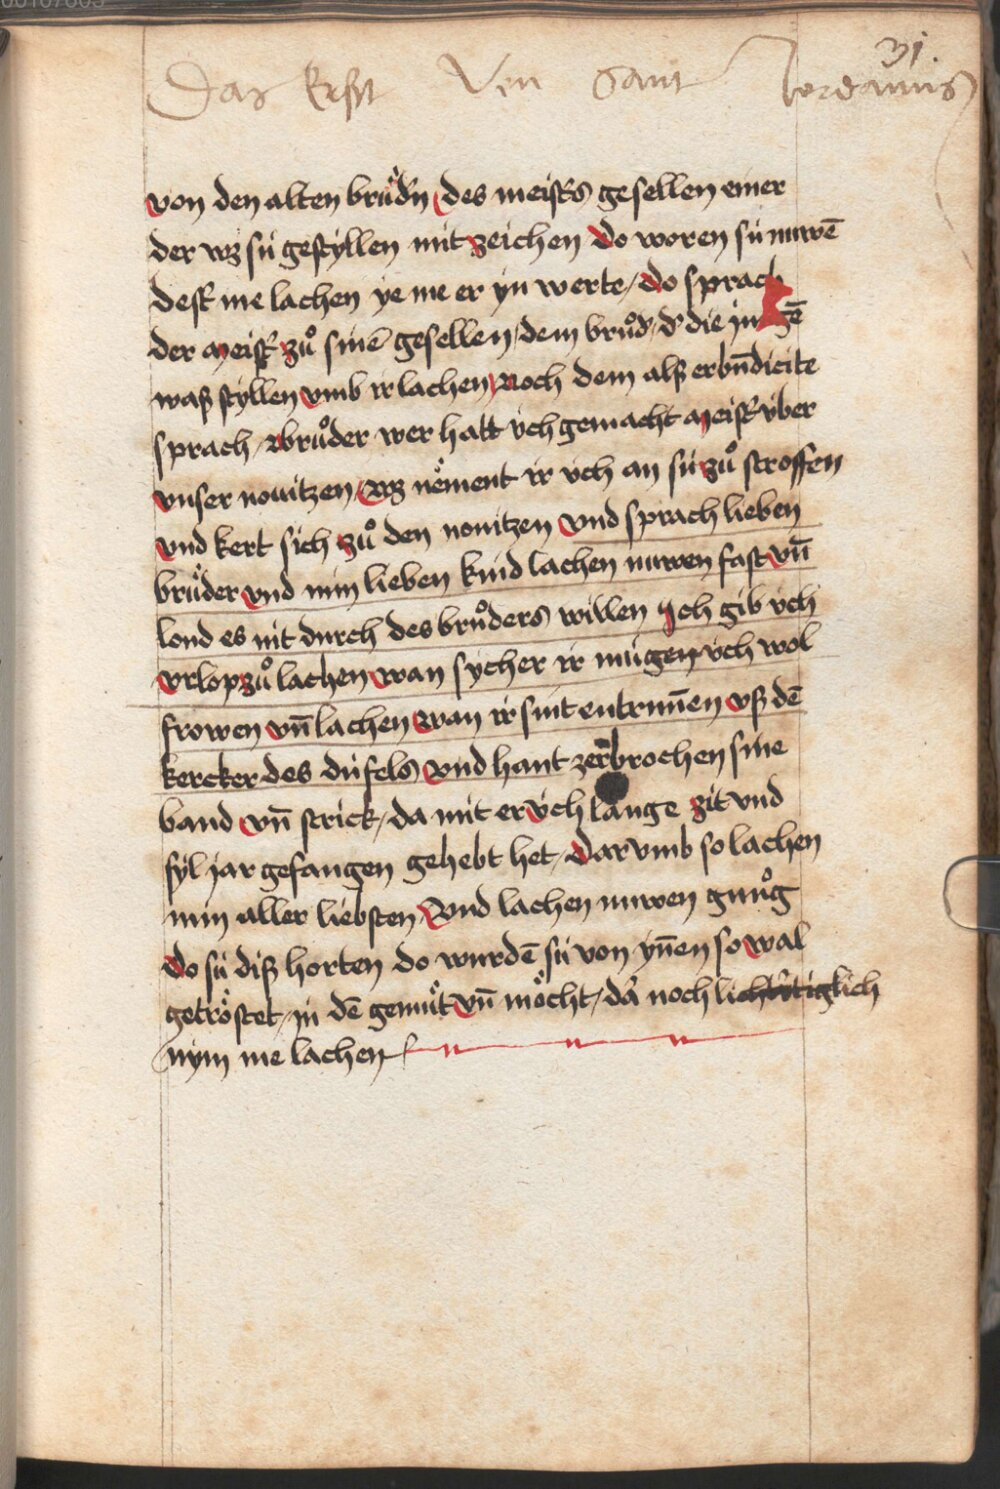 31.
Das Erst Von Sant Jordanus
von den alten brüd'n des meist's gesellen einer
der wz sü gestyllen mit zeichen do woren sü nuwē
dest me lachen ye me er yn werte / do sprach
der meist' zuͦ sinē gesellen / dem bruͦd' / d' die jungē
waß styllen vmb ir lachen / noch dem alß er bn̄dicite
sprach / bruͦder wer hatt üch gemacht meist' über
vnser nouitzen / wz nement ir üch an sü zuͦ stroffen
vnd kert sich zuͦ den nouitzen vnd sprach lieben
brüder vnd min lieben kind lachen nuwen fast vn̄
lond es nit durch des bruͦders willen Ich gib üch
vrlop zuͦ lachen wan sycher ir mügen üch wol
frowen vn̄ lachen wan ir sint entrunnen vß dē
kercker des düfels vnd hant zerbrochen sine
band vn̄ strick / da mit er üch lange zit vnd
fyl jar gefangen gehebt het / dar vmb so lachen
min aller liebsten vnd lachen nuwen gnuͦg
do sü diß horten do wurdē sü von ynnen so wal
getröstet / in dē gemüt vn̄ möcht / dar noch lich
nym me lachen